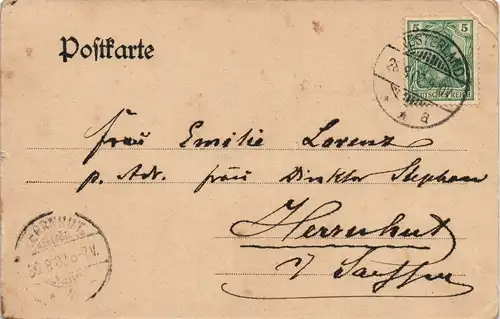 Postkarte
5 5
WESTERLAND
DEUTSCHES REICH
a
Frau Emilie Lorenz
p. Adr. Frau Direktor Stephan
Herrnhut
i/ Sachsen
HERRNHUT